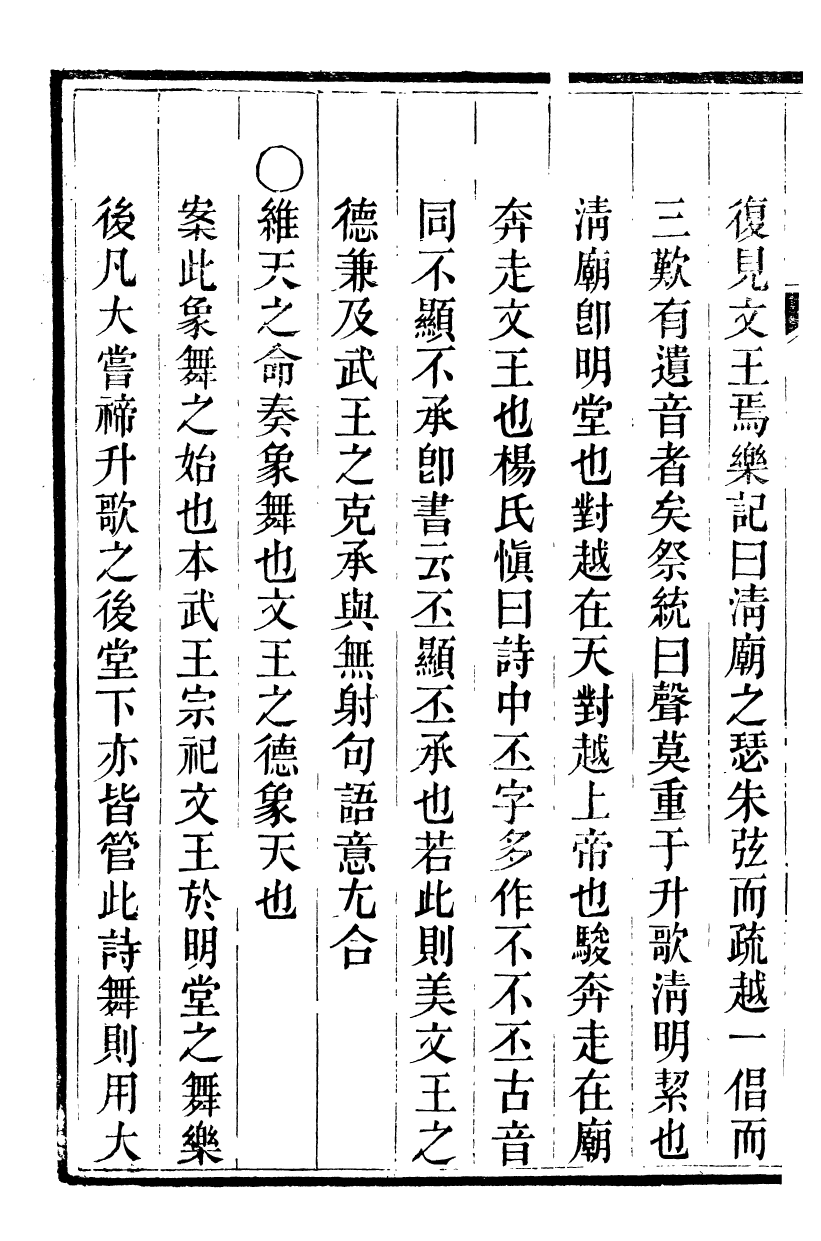 復見文王焉樂記曰淸廟之瑟朱弦而疏越一倡而
三歎有遺音者矣祭統曰聲莫重于升歌淸明絜也
淸廟卽明堂也對越在天對越上帝也駿奔走在廟
奔走文王也楊氏愼曰詩中丕字多作不不丕古音
同不顯不承卽書云丕顯丕承也若此則美文王之
德兼及武王之克承與無射句語意尢合
○維天之命奏象舞也文王之德象天也
案此象舞之始也本武王宗祀文王於明堂之舞樂
後凡大嘗禘升歌之後堂下亦皆管此詩舞則用大